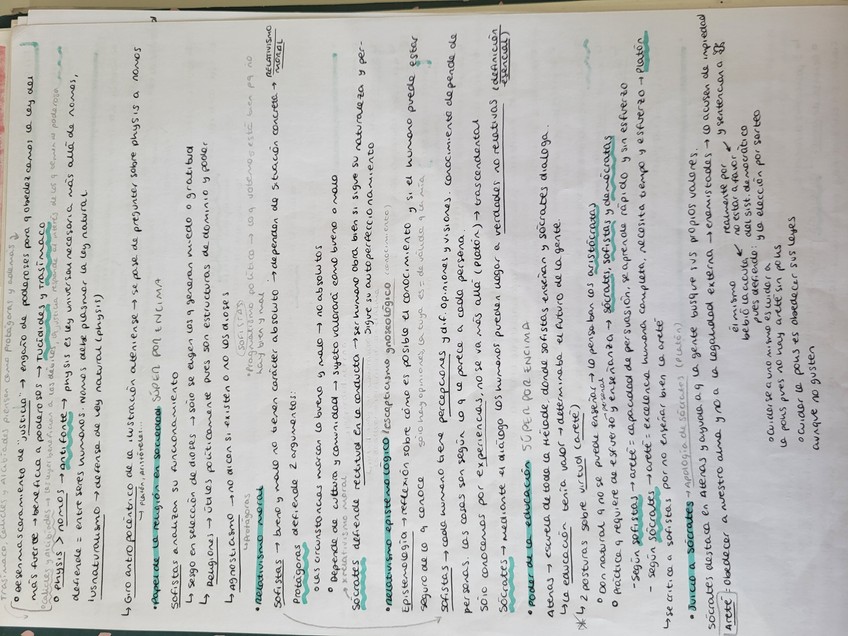 o Desenmascaramiento de "justicia" → engaño de poderosos para q obedezcamos la ley del
más fuerte → beneficia a poderosos → Tucídides y Trasímaco
o Physis > nomos → Antifonte → physis es ley universal necesaria más allá de nomos,
defiende = entre seres humanos. Nomos debe plasmar la ley natural
Iusnaturalismo → defensa de ley natural (physis)
↳ Giro antropocéntrico de la ilustración ateniense → se pasa de preguntar sobre physis a nomos
• Papel de la religión en sociedad SÚPER POR ENCIMA
Sofistas analizan su funcionamiento
↳ Sesgo en selección de dioses → sólo se eligen los q generan miedo o gratitud
↳ Religiones → útiles políticamente pues son estructuras de dominio y poder
↳ Agnosticismo → no dicen si existen o no los dioses
↳ Protágoras
• Relativismo moral
Sofistas → bueno y malo no tienen carácter absoluto ∴ dependen de situación concreta → RELATIVISMO MORAL
Protágoras defiende 2 argumentos:
o Las circunstancias marcan lo bueno y malo → no absolutos
o Depende de cultura y comunidad → sujeto valorará como bueno o malo
Sócrates defiende rectitud en la conducta → ser humano obra bien si sigue su naturaleza y persigue su autoperfeccionamiento
• Relativismo epistemológico /escepticismo gnoseológico (conocimiento)
Epistemología → reflexión sobre cómo es posible el conocimiento y si el humano puede estar
seguro de lo q conoce
Sofistas → cada humano tiene percepciones y dif. opiniones y visiones. Conocimiento depende de
persona, las cosas son según lo q le parece a cada persona.
Sólo conocemos por experiencias, no se va más allá (Platón) → trascendental
Sócrates → mediante el diálogo los humanos pueden llegar a verdades no relativas (definición esencial)
• Poder de la educación SÚPER POR ENCIMA
Atenas → escuela de toda la Hélade, donde sofistas enseñan y Sócrates dialoga.
↳ La educación tenía valor → determinaba el futuro de la gente.
* ↳ 2 posturas sobre virtud (areté)
o Don natural q no se puede enseñar → lo pensaban los aristócratas
o Práctica q requiere de esfuerzo personal y enseñanza → Sócrates, sofistas y demócratas
- Según sofistas → areté = capacidad de persuasión, se aprende rápido y sin esfuerzo
- Según Sócrates → areté = excelencia humana completa, necesita tiempo y esfuerzo → Platón
↳ se critica a sofistas por no enseñar bien la areté
• Juicio a Sócrates → Apología de Sócrates (Platón)
Sócrates destaca en Atenas y ayuda a q la gente busque sus propios valores.
Areté → obedecer a nuestro alma y no a la legalidad externa → enemistades → lo acusan de impiedad
y sentencian a
él mismo bebió la cicuta
realmente por no estar a favor del sist. democrático
pues defiende:
y la elección por sorteo
o cuidarse a uno mismo es cuidar a
la polis pues no hay areté sin polis
o cuidar la polis es obedecer sus leyes
aunque no gusten